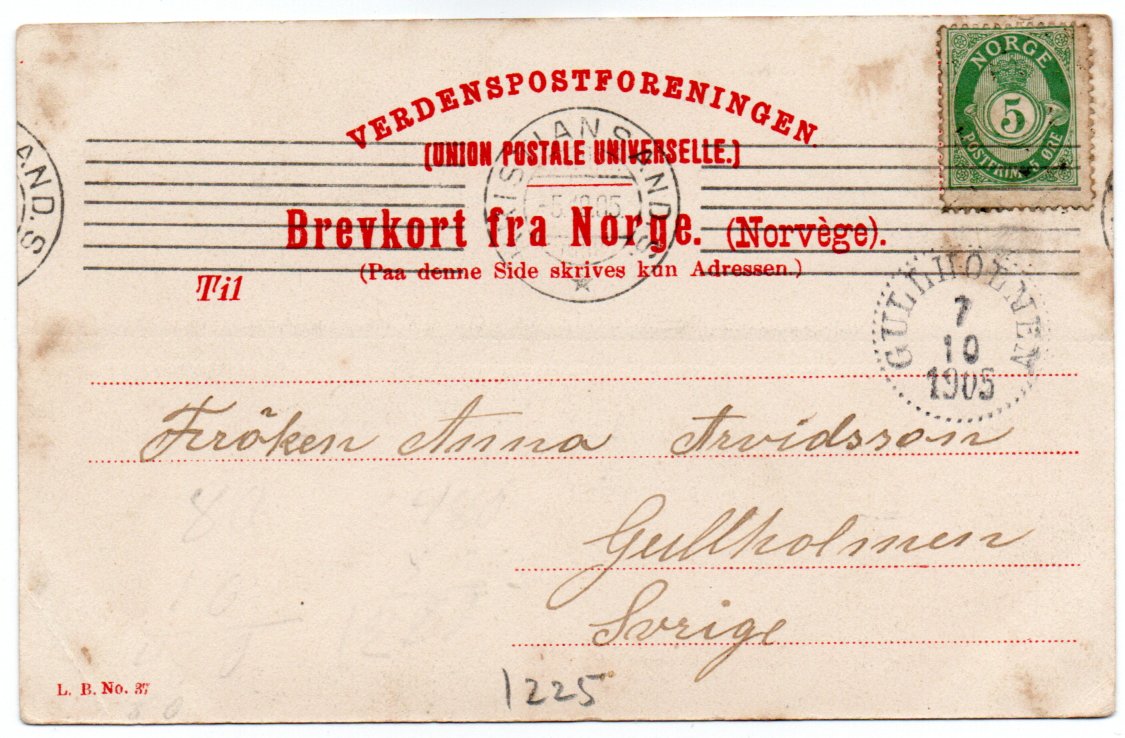 VERDENSPOSTFORENINGEN.
(UNION POSTALE UNIVERSELLE.)
Brevkort fra Norge. (Norvège).
(Paa denne Side skrives kun Adressen.)
Til
NORGE
5
POSTFRIM. 5 ØRE
KRISTIANSAND.S
-5.10.05.
AND.S
GULLHOLMEN
7
10
1905
Fröken Anna Arvidsson
Gullholmen
Svrige
1225
L. B. No. 37